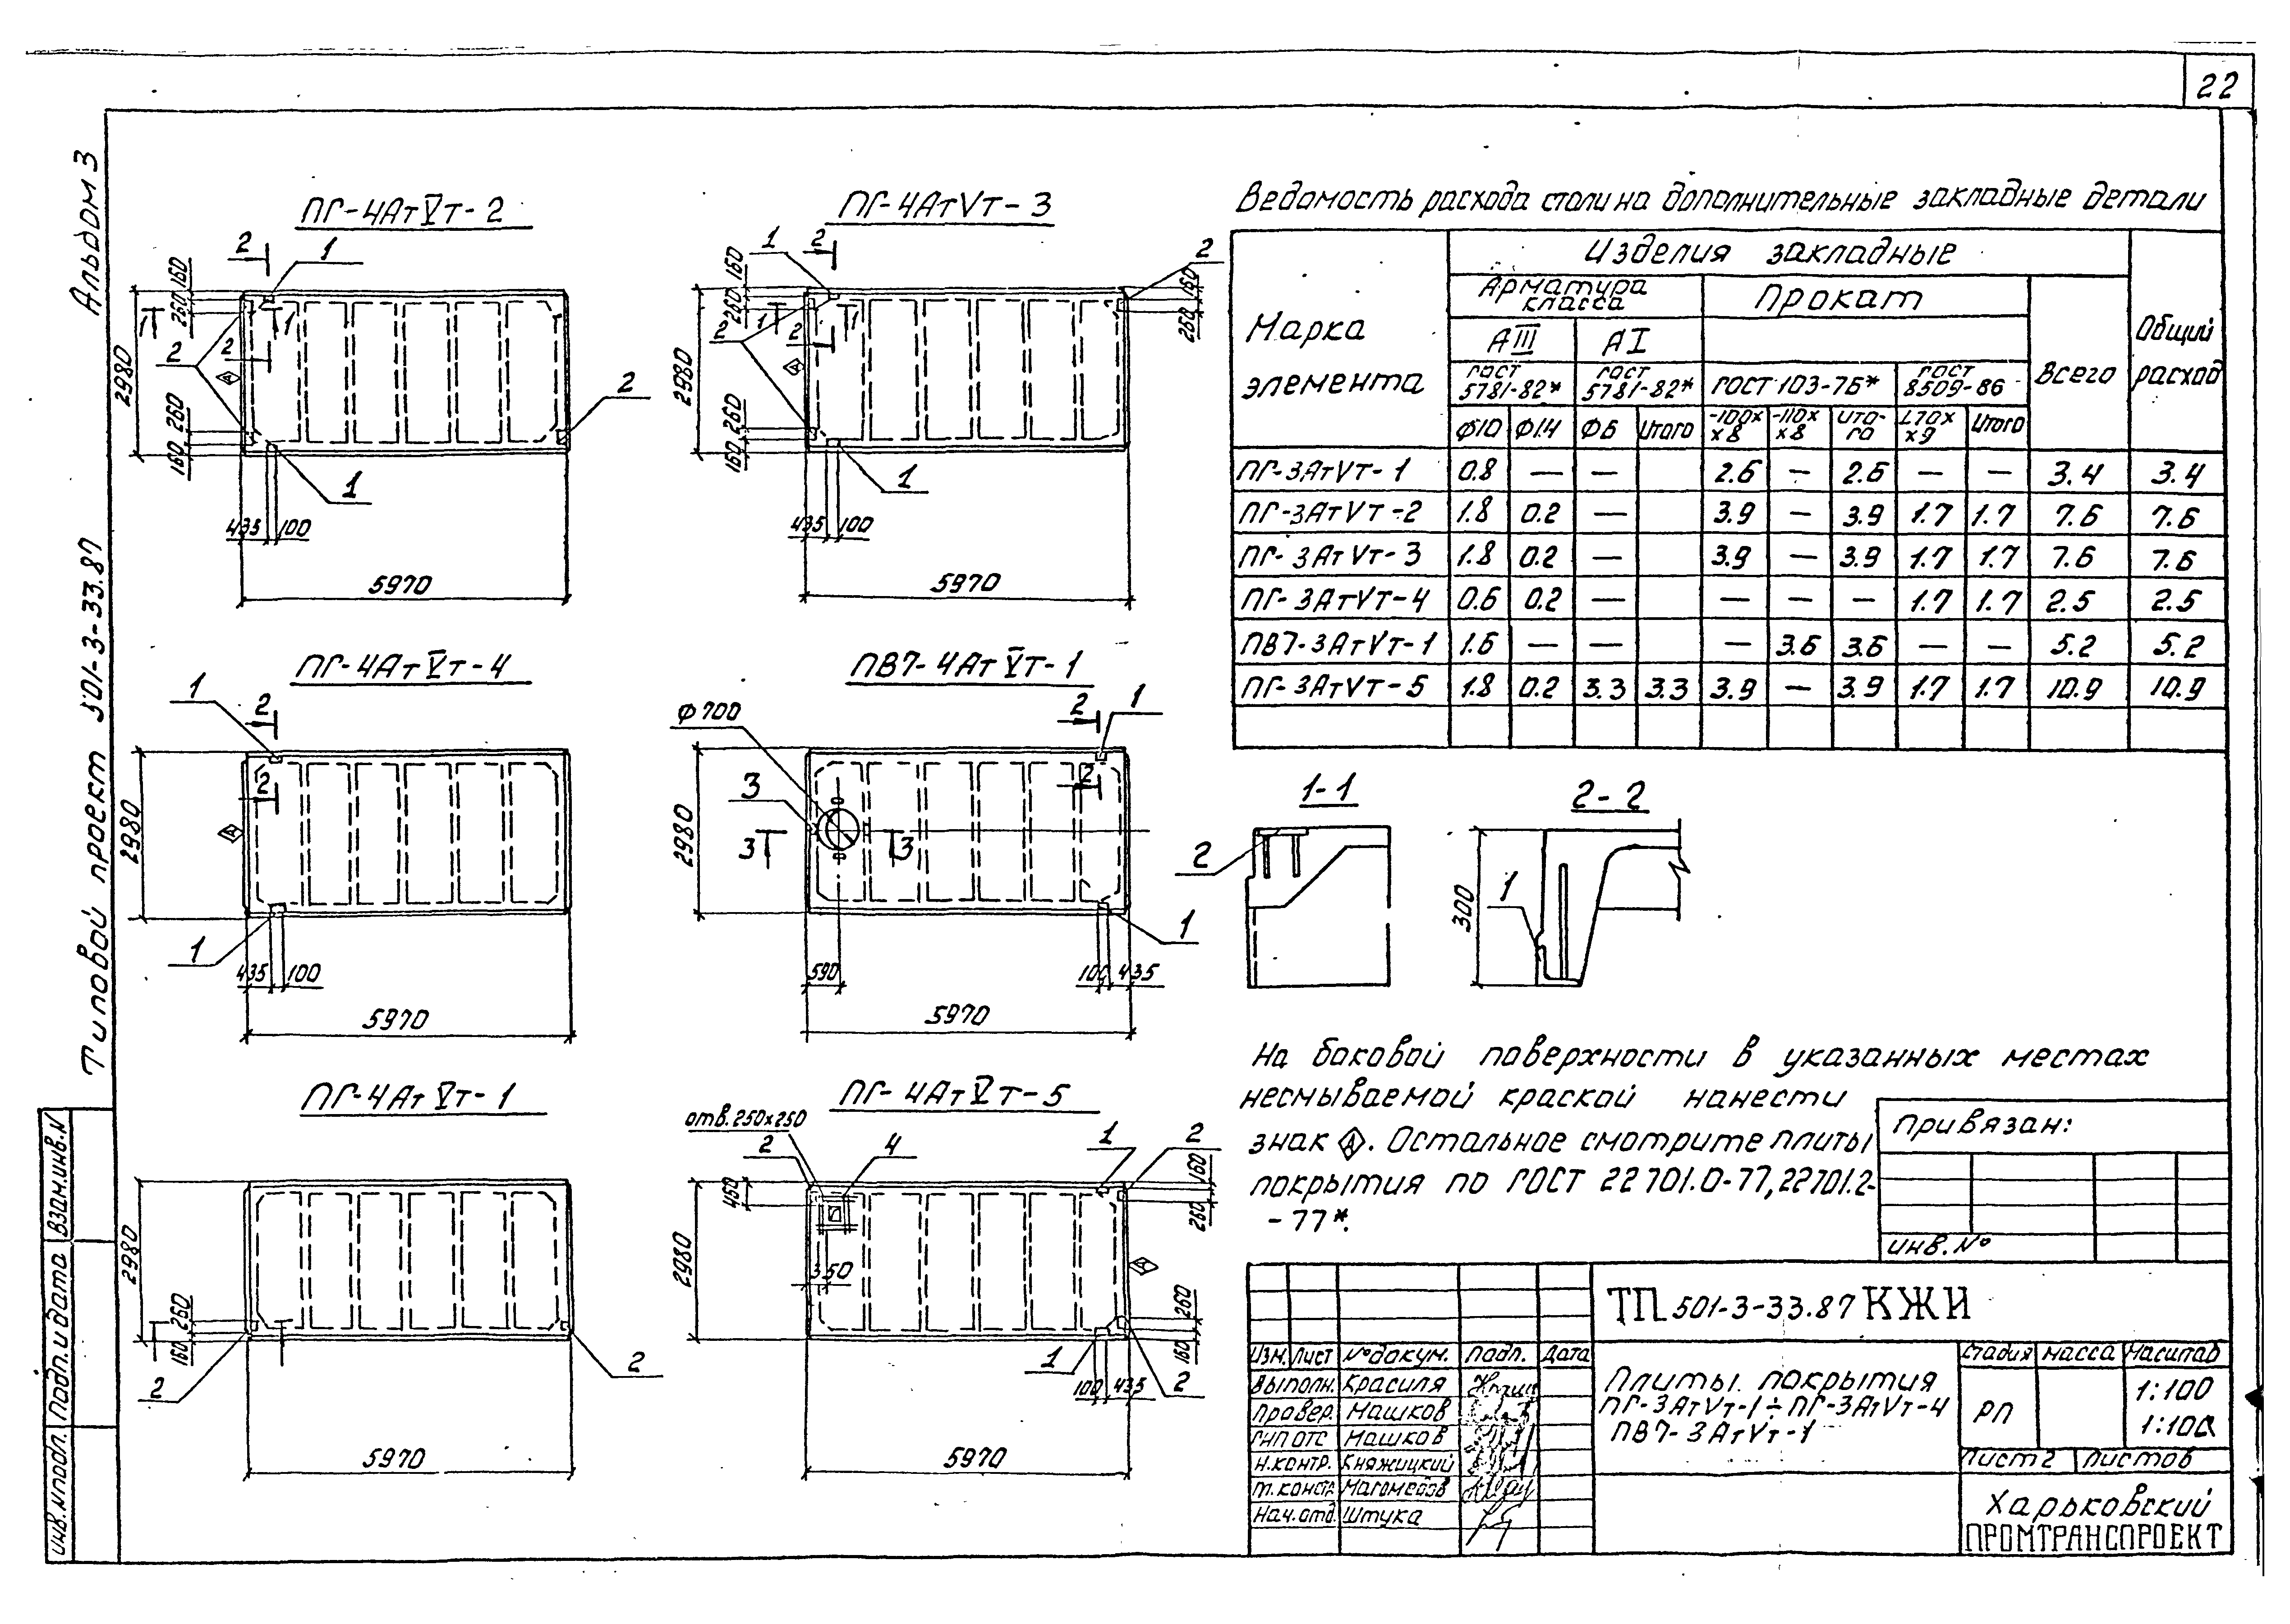 22
Альбом 3
Типовой проект 501-3-33.87
Взам.инв.N
Подп. и дата
Инв.Nподл.
ПГ-4АтVт-2
2
1
160
260
1
1
2
2
2980
2
260
160
1
435
100
5970
ПГ-4АтVт-3
1
2
2
160
260
160
260
1
1
2
2
2980
260
160
1
435
100
5970
ПГ-4АтVт-4
1
2
2
2980
1
435
100
5970
ПВ7-4АтVт-1
Ф700
2
1
2
3
3
3
2980
1
590
100
435
5970
ПГ-4АтVт-1
2980
260
160
2
2
5970
ПГ-4АтVт-5
отв.250х250
2
4
1
2
450
160
260
2980
350
260
160
1
2
100
435
5970
Ведомость расхода стали на дополнительные закладные детали
Марка элемента
Изделия закладные
Общий расход
Арматура класса
Прокат
Всего
АIII
АI
ГОСТ 5781-82*
ГОСТ 5781-82*
ГОСТ 103-76*
ГОСТ 8509-86
Ф10 Ф14 Ф6 Итого -100х х8 -110х х8 Ито- го L70х х9 Итого
ПГ-3АтVт-1 0.8 — — 2.6 — 2.6 — — 3.4 3.4
ПГ-3АтVт-2 1.8 0.2 — 3.9 — 3.9 1.7 1.7 7.6 7.6
ПГ-3АтVт-3 1.8 0.2 — 3.9 — 3.9 1.7 1.7 7.6 7.6
ПГ-3АтVт-4 0.6 0.2 — — — — 1.7 1.7 2.5 2.5
ПВ7-3АтVт-1 1.6 — — — 3.6 3.6 — — 5.2 5.2
ПГ-3АтVт-5 1.8 0.2 3.3 3.3 3.9 — 3.9 1.7 1.7 10.9 10.9
1-1
2
2-2
300
1
На боковой поверхности в указанных местах
несмываемой краской нанести
знак А. Остальное смотрите плиты
покрытия по ГОСТ 22701.0-77, 22701.2-
-77*.
Привязан:
Инв.№
ТП 501-3-33.87 КЖИ
Изм. Лист №докум. Подп. Дата
Выполн. Красиля
Провер. Машков
ГИП ОТС Машков
Н.контр. Княжицкий
Т.констр. Магомедов
Нач.отд. Штука
Плиты покрытия
ПГ-3АтVт-1÷ПГ-3АтVт-4
ПВ7-3АтVт-1
Стадия Масса Масштаб
РП
1:100
1:100
Лист 2 Листов
Харьковский
ПРОМТРАНСПРОЕКТ